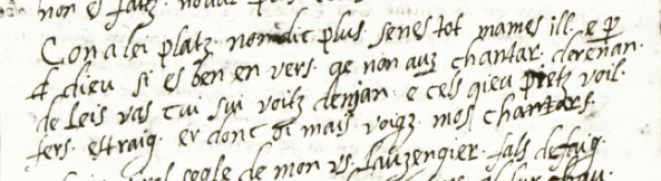 non es fatz. nouar
Con a lei platz. non dic plus. senes tot mames ill. e p
A dieu si es ben en vers. qe non auz chantar. derenan.
de leis vas cui sui voitz denjan. e cels qieu pretz voil.
fers. estraig. er donc oi mais voigz. mos chantars.
segle de mon vs. lauzengier. fals